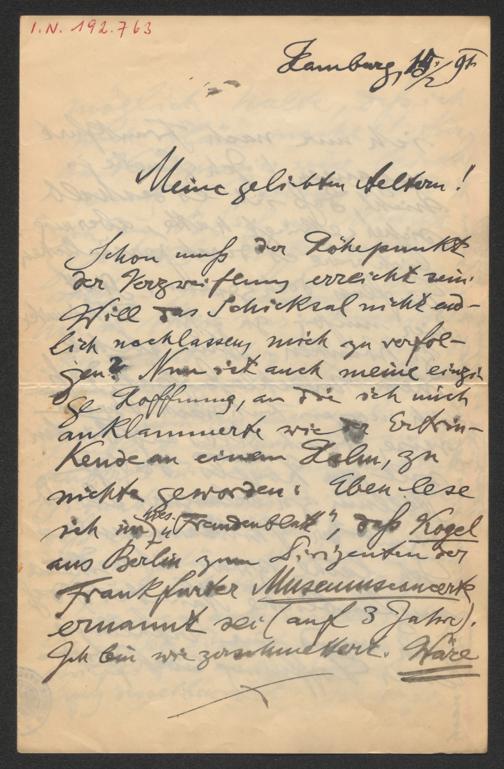 I.N. 192.763
Hamburg, 15/2 91.
Meine geliebten Aeltern!
Schon muß der Höhepunkt
der Verzweiflung erreicht sein.
Will das Schicksal nicht end-
lich nachlassen, mich zu verfol-
gen? Nun ist auch meine einzi-
ge Hoffnung, an die ich mich
anklammerte wie der Ertrin-
kende an einem Halm, zu
nichte geworden: Eben lese
ich im „Fremdenblatt“, daß Kogel
aus Berlin zum Dirigenten der
Frankfurter Museumsconcerte
ernannt sei (auf 3 Jahre).
Ich bin wie zerschmettert. Wäre